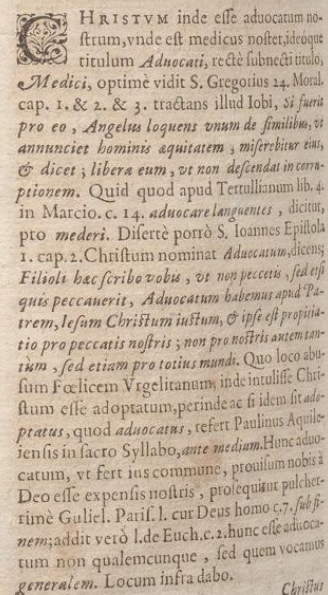 CHRISTVM inde esse aduocatum no-
strum, vnde est medicus noster, ideóque
titulum Aduocati, rectè subnecti titulo,
Medici, optimè vidit S. Gregorius 24. Moral.
cap. 1. & 2. & 3. tractans illud Iobi, Si fuerit
pro eo, Angelus loquens vnum de similibus, vt
annunciet hominis æquitatem, miserebitur eius,
& dicet; libera eum, vt non descendat in corru-
ptionem. Quid quod apud Tertullianum lib. 4.
in Marcio. c. 14. aduocare languentes, dicitur,
pro mederi. Disertè porrò S. Ioannes Epistola
1. cap. 2. Christum nominat Aduocatum, dicens;
Filioli hæc scribo vobis, vt non peccetis, sed etsi
quis peccauerit, Aduocatum habemus apud Pa-
trem, Iesum Christum iustum, & ipse est propitia-
tio pro peccatis nostris; non pro nostris autem tan-
tùm, sed etiam pro totius mundi. Quo loco abu-
sum Fœlicem Vrgelitanum, inde intulisse Chri-
stum esse adoptatum, perinde ac si idem sit ado-
ptatus, quod aduocatus, refert Paulinus Aquile-
iensis in sacro Syllabo, ante medium. Hunc aduo-
catum, vt fert ius commune, prouisum nobis à
Deo esse expensis nostris, prosequitur pulcher-
rimè Guliel. Paris. l. cur Deus homo c. 7. sub fi-
nem; addit verò l. de Euch. c. 2. hunc esse aduoca-
tum non qualemcunque, sed quem vocamus
generalem. Locum infra dabo.
Christus